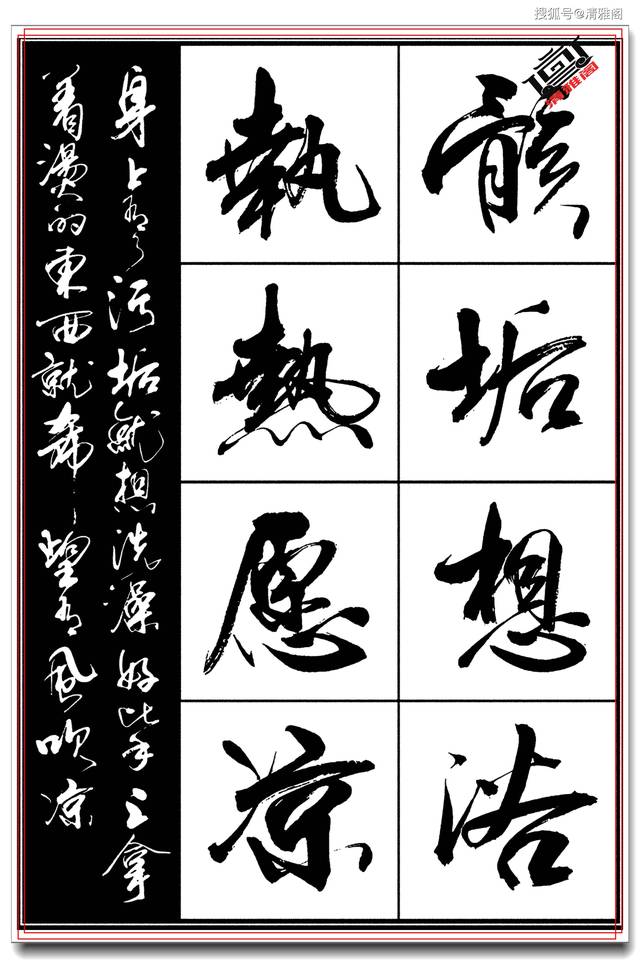 搜狐号@清雅阁
清雅阁
骸垢想浴
執熱愿凉
身上有了污垢就想洗澡好比手上拿
着燙的東西就希望有風吹凉